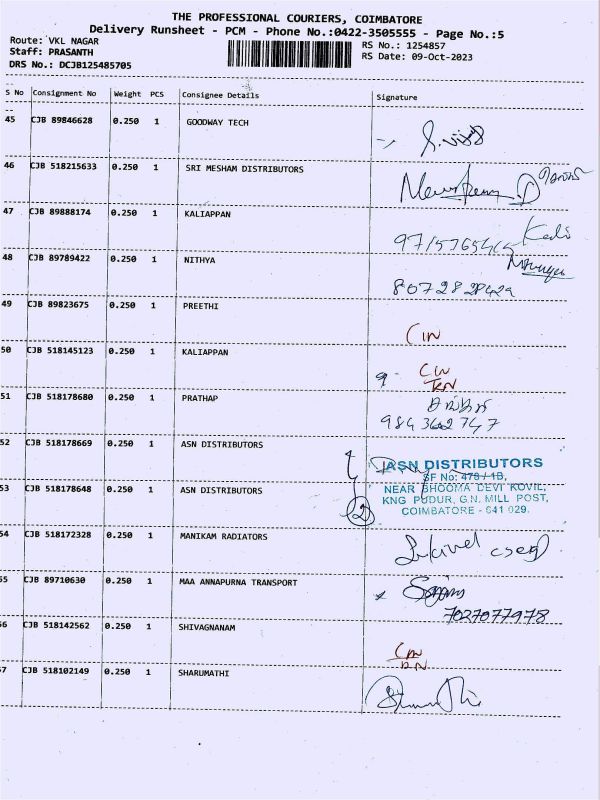 THE PROFESSIONAL COURIERS, COIMBATORE
Delivery Runsheet - PCM - Phone No.:0422-3505555 - Page No.:5
Route: VKL NAGAR RS No.: 1254857
Staff: PRASANTH RS Date: 09-Oct-2023
DRS No.: DCJB125485705
S No Consignment No Weight PCS Consignee Details Signature
45 CJB 89846628 0.250 1 GOODWAY TECH
46 CJB 518215633 0.250 1 SRI MESHAM DISTRIBUTORS
47 CJB 89888174 0.250 1 KALIAPPAN
48 CJB 89789422 0.250 1 NITHYA
49 CJB 89823675 0.250 1 PREETHI
50 CJB 518145123 0.250 1 KALIAPPAN
51 CJB 518178680 0.250 1 PRATHAP
52 CJB 518178669 0.250 1 ASN DISTRIBUTORS
ASN DISTRIBUTORS
SF No: 478/1B,
NEAR BHOOMA DEVI KOVIL,
KNG PUDUR, G.N. MILL POST,
COIMBATORE - 641 029.
53 CJB 518178648 0.250 1 ASN DISTRIBUTORS
2
54 CJB 518172328 0.250 1 MANIKAM RADIATORS
55 CJB 89710630 0.250 1 MAA ANNAPURNA TRANSPORT
7027077978
56 CJB 518142562 0.250 1 SHIVAGNANAM
57 CJB 518102149 0.250 1 SHARUMATHI